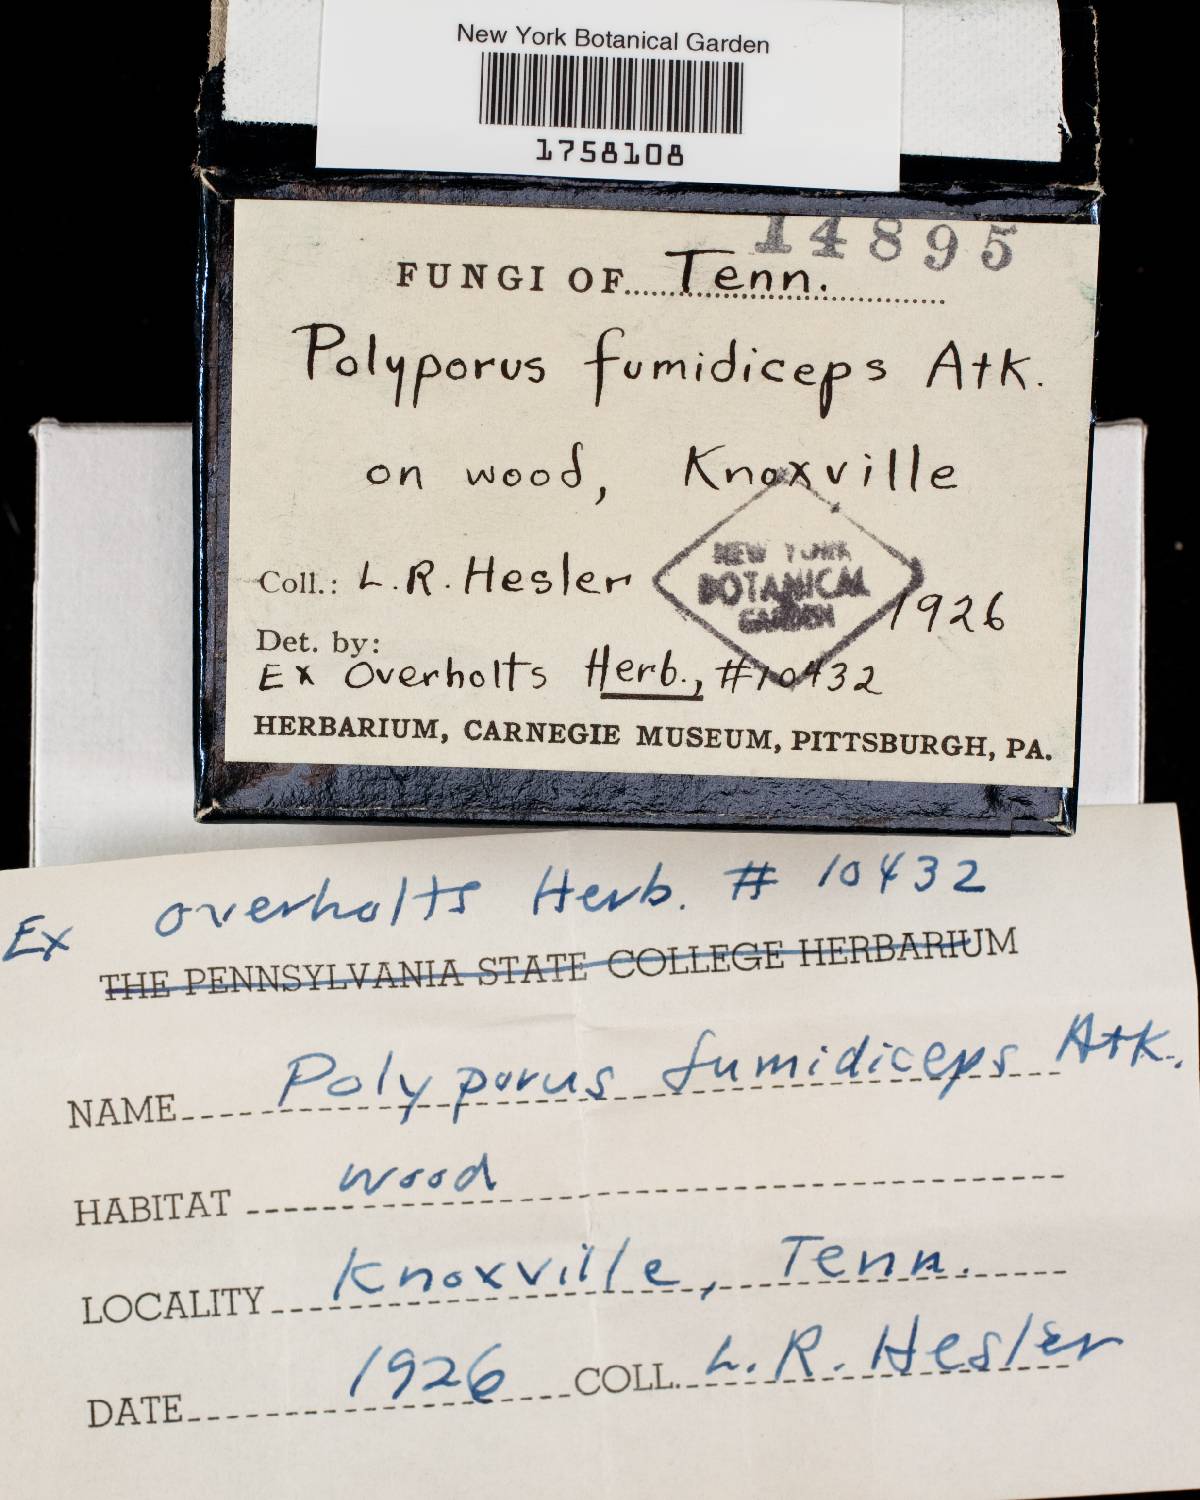 New York Botanical Garden
1758108
14895
FUNGI OF Tenn.
Polyporus fumidiceps Atk.
on wood, Knoxville
NEW YORK
BOTANICAL
GARDEN
Coll.: L.R. Hesler 1926
Det. by:
Ex Overholts Herb., #10432
HERBARIUM, CARNEGIE MUSEUM, PITTSBURGH, PA.
Ex Overholts Herb. # 10432
THE PENNSYLVANIA STATE COLLEGE HERBARIUM
NAME Polyporus fumidiceps Atk.
HABITAT wood
LOCALITY Knoxville, Tenn.
DATE 1926 COLL. L.R. Hesler